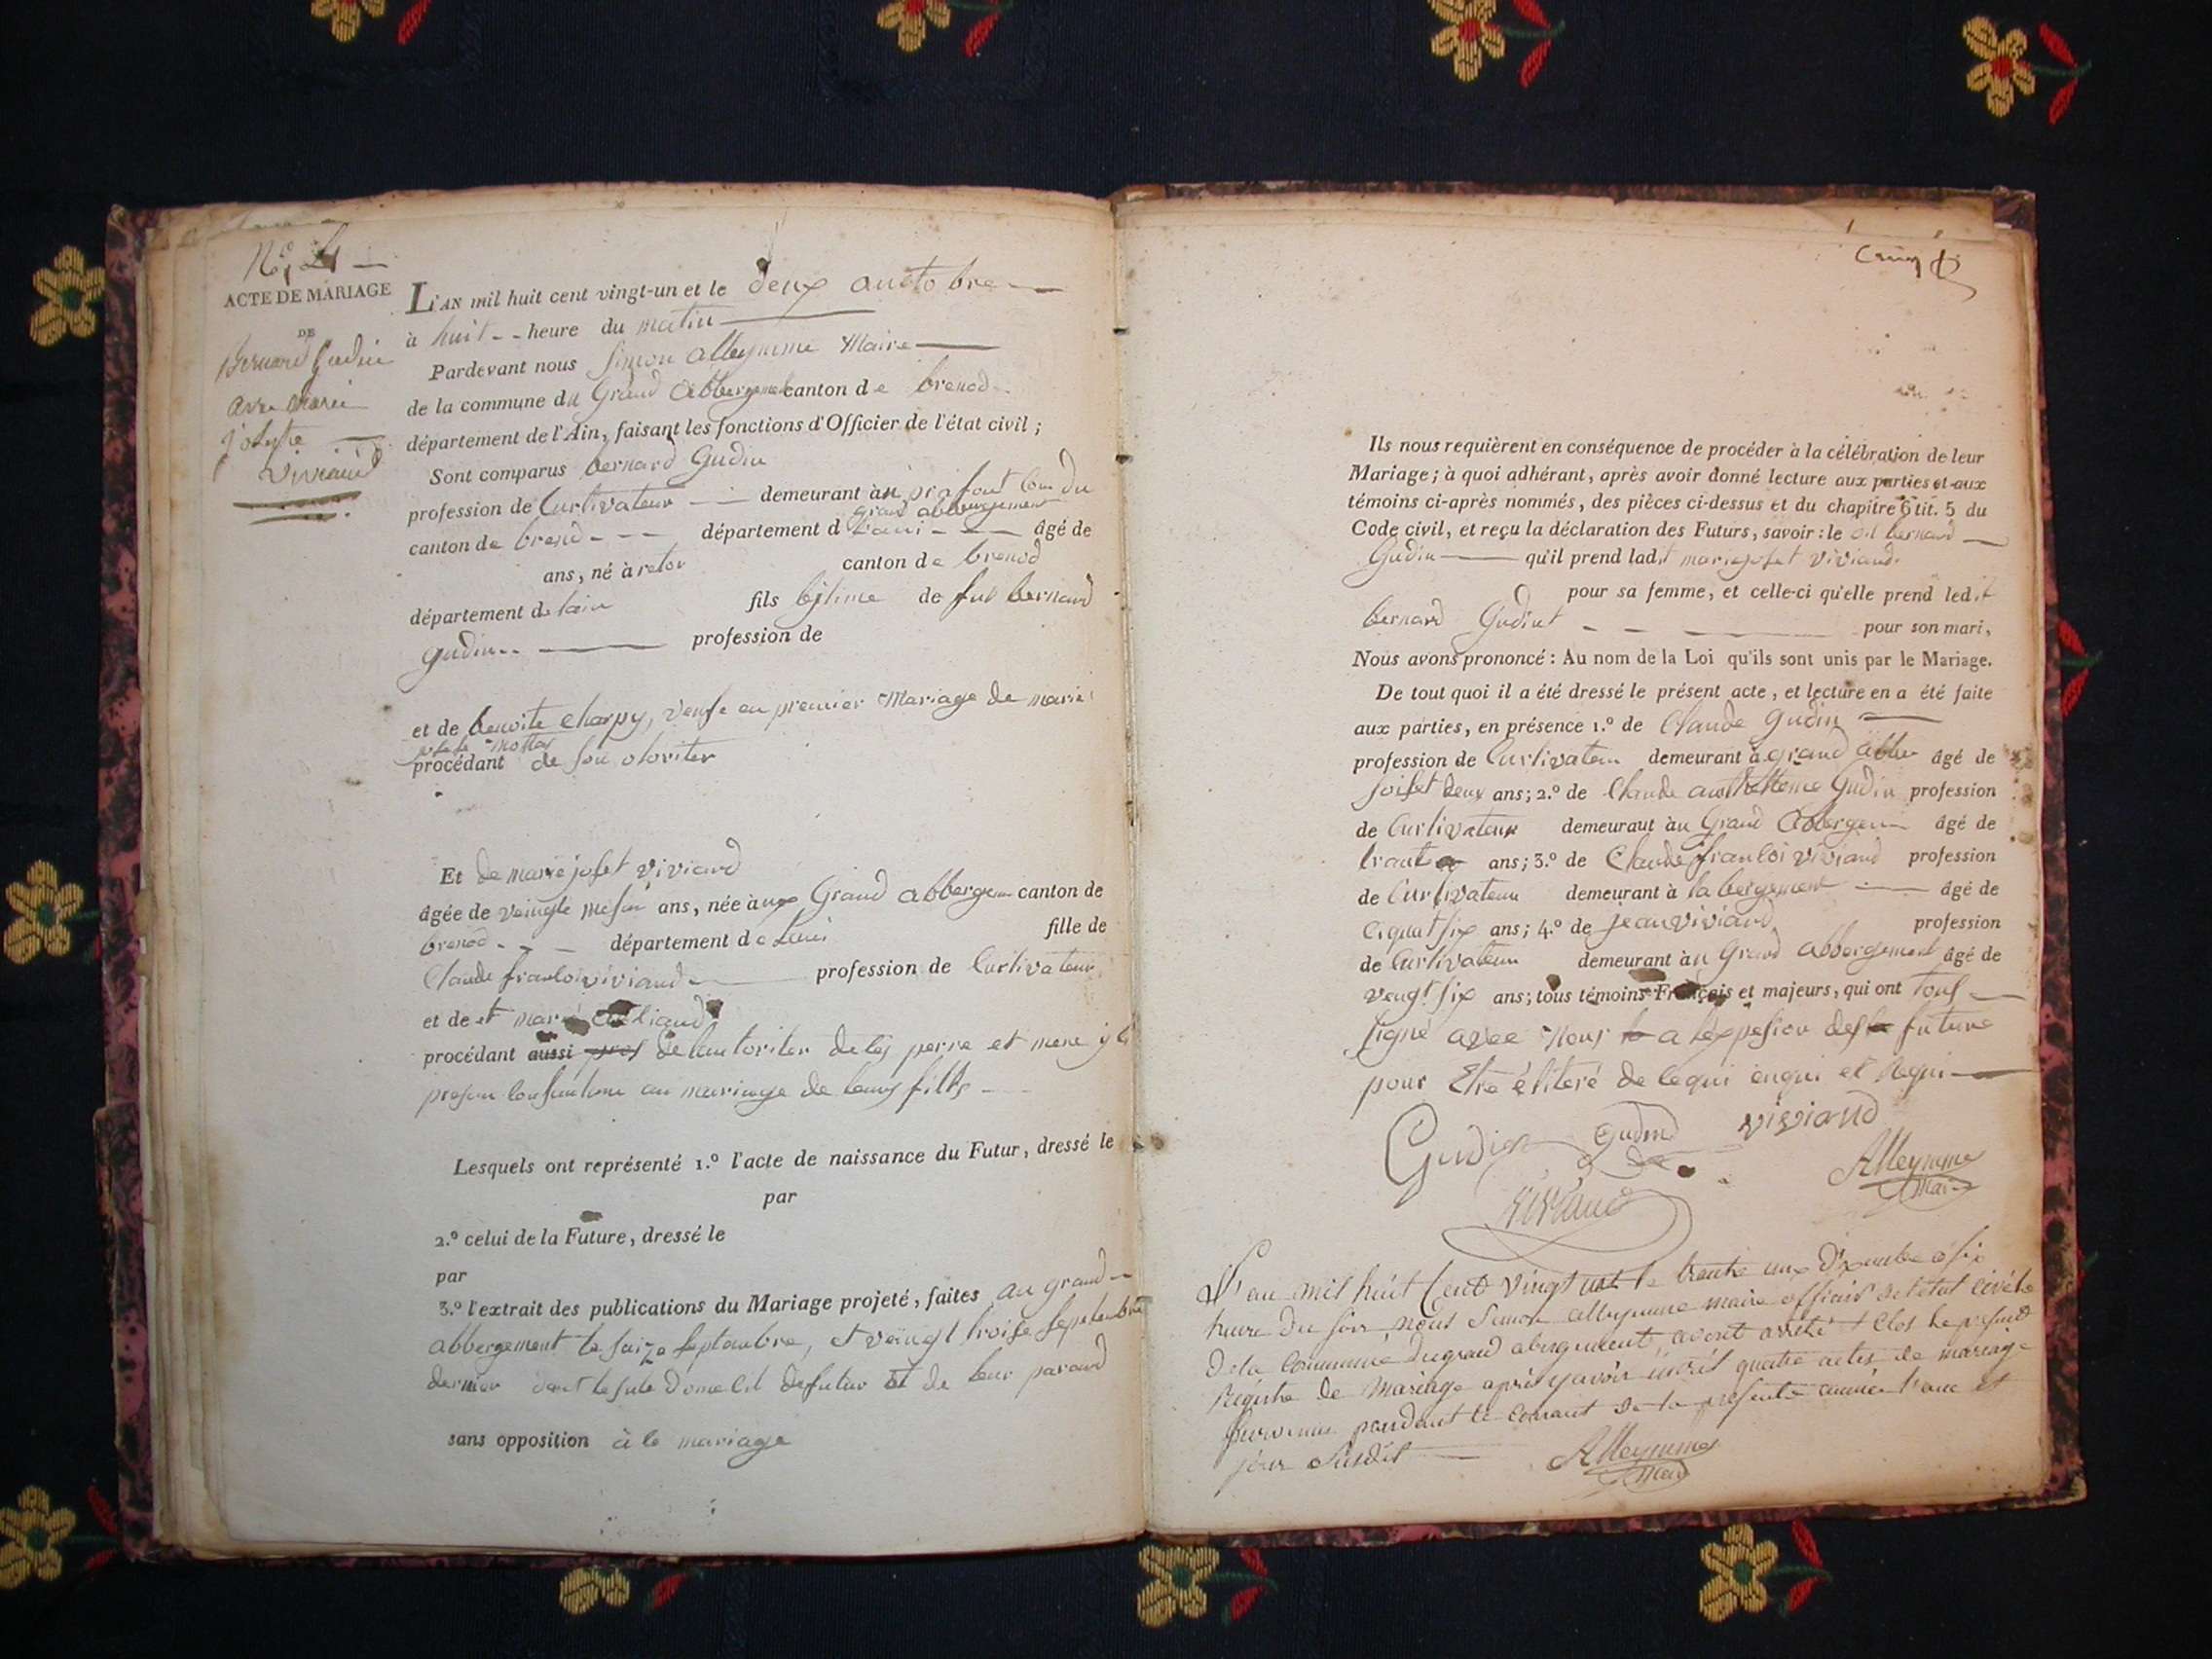 N.o 4
ACTE DE MARIAGE
DE
Bernard Gudin
avec marie
josephte
Viviand
L'AN mil huit cent vingt-un et le deux auctobre
à huit heure du matin
Pardevant nous Simon alleymme Maire
de la commune du Grand Abbergement canton de brenod
département de l'Ain, faisant les fonctions d'Officier de l'état civil ;
Sont comparus bernard Gudin
profession de Curtivateur demeurant àu prafont Com du
grand abbergement
canton de brenod département d âgé de
ans, né à retor canton de brenod
département de lain fils lejtime de fut bernard
gudin profession de
et de benoite charpy, veufe en premier Mariage de marie
josete mottas
procédant de son otoriter
Et de marie jofet viviand
âgée de veingte ans, née àux Grand abbergem canton de
brenod département de Lain fille de
Claude franloi viviand profession de Curtivateur
et de et marie
procédant aussi de lautoriter de les perre et mere
au mariage de leurs fills
Lesquels ont représenté 1.º l'acte de naissance du Futur, dressé le
par
2.º celui de la Future, dressé le
par
3.º l'extrait des publications du Mariage projeté, faites au grand
abbergement le saize septambre, et veingt troise septembre
dernier de futur et de leur parand
sans opposition à le mariage
Cinq
Ils nous requièrent en conséquence de procéder à la célébration de leur
Mariage ; à quoi adhérant, après avoir donné lecture aux parties et aux
témoins ci-après nommés, des pièces ci-dessus et du chapitre 6 tit. 5 du
Code civil, et reçu la déclaration des Futurs, savoir : le dit bernard
Gudin qu'il prend ladit marie jofet viviand
pour sa femme, et celle-ci qu'elle prend ledit
bernard Gudint pour son mari,
Nous avons prononcé : Au nom de la Loi qu'ils sont unis par le Mariage.
De tout quoi il a été dressé le présent acte, et lecture en a été faite
aux parties, en présence 1.º de Claude gudin
profession de Curtivateur demeurant à grand abber âgé de
soiset deux ans ; 2.º de Claude Gudin profession
de Curtivateur demeurant àu Grand Abbergem âgé de
trante ans ; 3.º de Claude franloi viviand profession
de Curtivateur demeurant à labergement âgé de
ciquant six ans ; 4.º de jean viviand profession
de Curtivateur demeurant àu Grand abbergement âgé de
vengt six ans ; tous témoins Français et majeurs, qui ont tous
signé avec nous a lexpesion des future
pour Etre éliteré de lequi enqui et Requi
Gudin Gudin viviand
viviand Alleymme
Maire
L'an mil huit Cent vingt un le trente une Dxembre a six
heure du soir nous Simon alleymme maire officier de letat civil
De la Commune Dugrand abergement, avont arreté et Clos le present
Registre de Mariage après y avoir inscrit quatre actes de mariage
survenus pendant le Courant de la presente année l'an et
jour susdit Alleymme
Maire